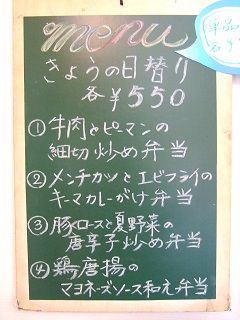 menu
きょうの日替り
各¥550
①牛肉とピーマンの
細切炒め弁当
②メンチカツとエビフライの
キーマカレーがけ弁当
③豚ロースと夏野菜の
唐辛子炒め弁当
④鶏唐揚の
マヨネーズソース和え弁当